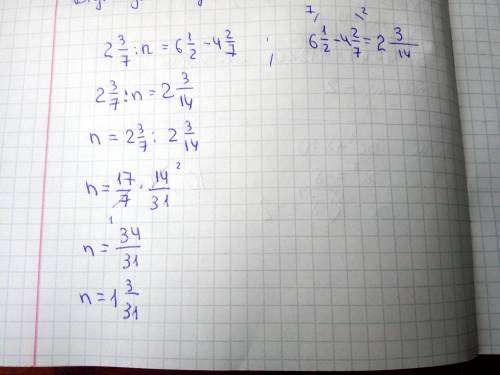 2 3/7 : n = 6 1/2 - 4 2/7 ; 6 1/2 - 4 2/7 = 2 3/14
2 3/7 : n = 2 3/14
n = 2 3/7 : 2 3/14
n = 17/7 · 14/31
n = 34/31
n = 1 3/31